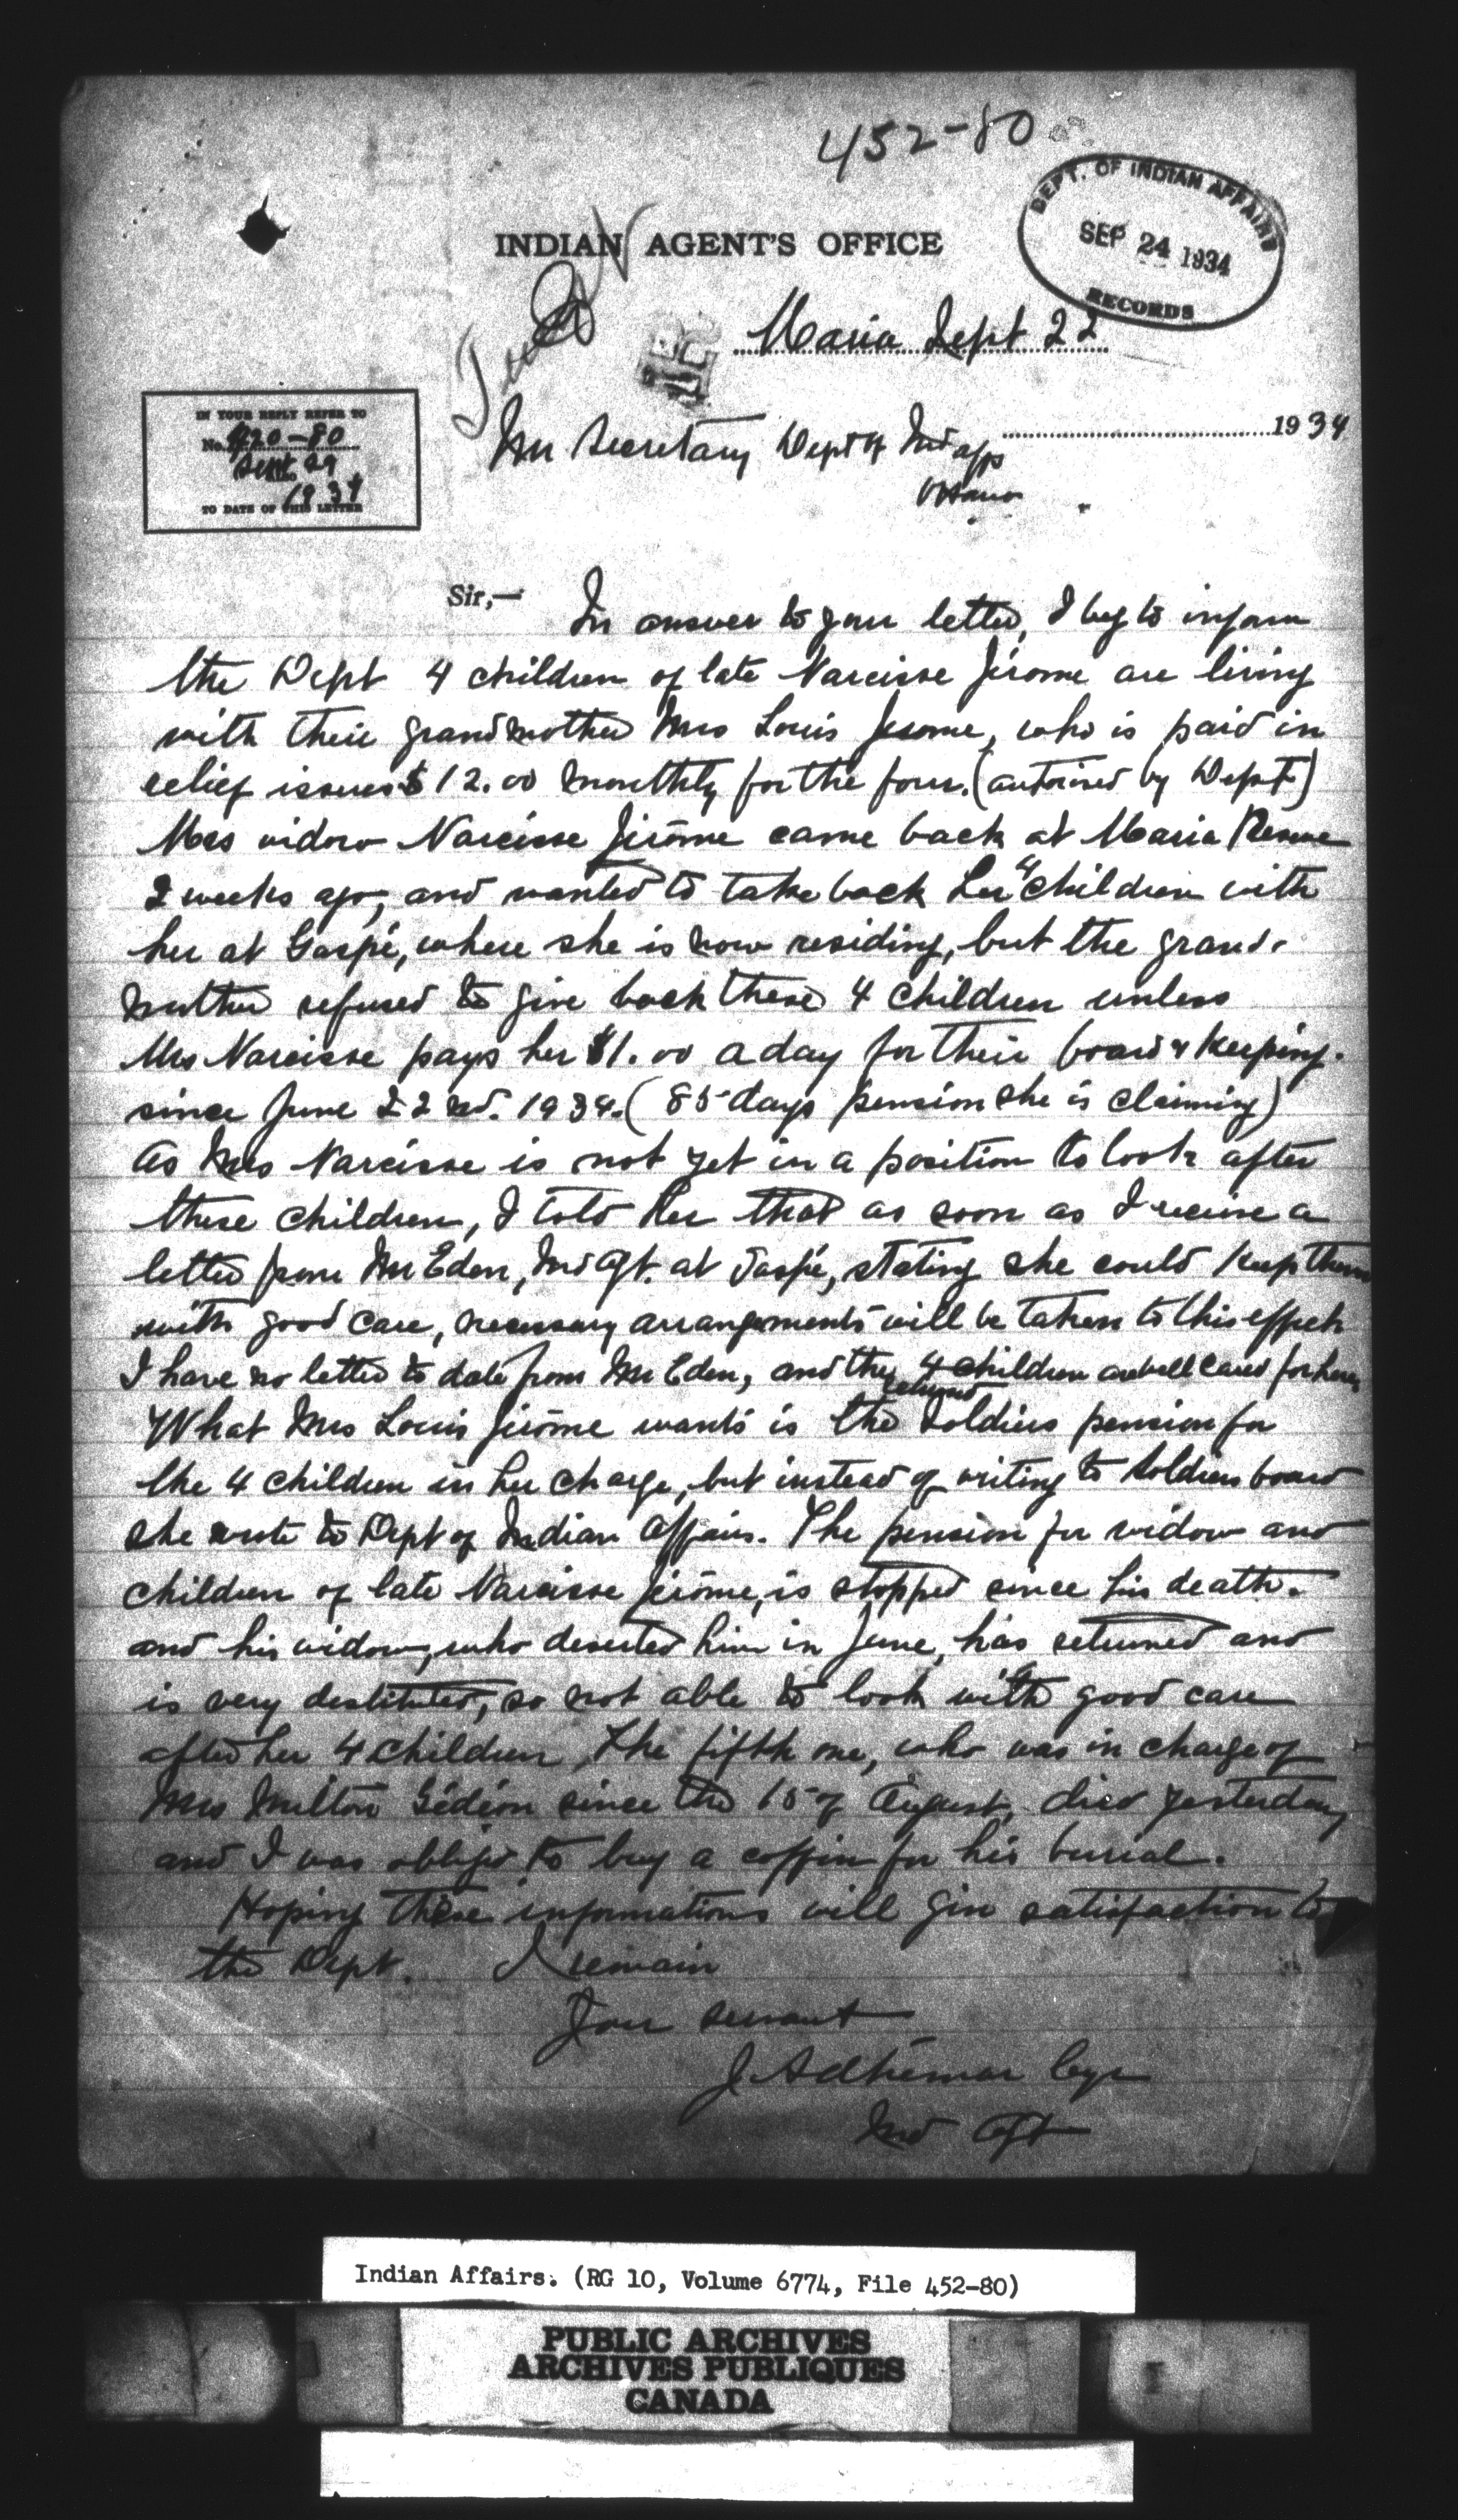 452-80
DEPT. OF INDIAN AFFAIRS
SEP 24 1934
RECORDS
INDIAN AGENT'S OFFICE
Maria Sept 22
1934
IN YOUR REPLY REFER TO
No. 420-80
Sept 29
ALSO
1934
TO DATE OF THIS LETTER
Mr Secretary Dept of Ind aff
Ottawa
Sir,— In answer to your letter, I beg to inform
the Dept 4 children of late Narcisse Jérome are living
with their grandmother Mrs Louis Jerome, who is paid in
relief issues $12.00 monthly for the four. (autorised by Dept)
Mrs vidow Narcisse Jérôme came back at Maria Reserve
2 weeks ago, and wanted to take back her 4 children with
her at Gaspé, where she is now residing, but the grand-
mother refused to give back these 4 children unless
Mrs Narcisse pays her $1.00 a day for their board & keeping.
since June 22nd. 1934. (85 days pension she is claiming)
As Mrs Narcisse is not yet in a position to look after
these children, I told her that as soon as I receive a
letter from Mr Eden, Ind Agt. at Gaspé, stating she could keep them
with good care, necessary arrangements will be taken to this effect
I have no letter to date from Mr Eden, and the 4 children are well cared for here
What Mrs Louis Jérôme wants is the returned soldiers pension for
the 4 children in her charge, but instead of writing to soldiers board
she wrote to Dept of Indian Affairs. The pension for vidow and
children of late Narcisse Jérôme, is stopped since his death.
and his vidow, who deserted him in June, has returned and
is very destituted, so not able to look with good care
after her 4 children, The fifth one, who was in charge of
Mrs Milton Gédéon since the 15 of August, died yesterday
and I was obliged to buy a coffin for his burial.
Hoping these informations will give satisfaction to
the Dept. I remain
Your servant
J. Adhémar Cyr
Ind Agt
Indian Affairs. (RG 10, Volume 6774, File 452-80)
PUBLIC ARCHIVES
ARCHIVES PUBLIQUES
CANADA